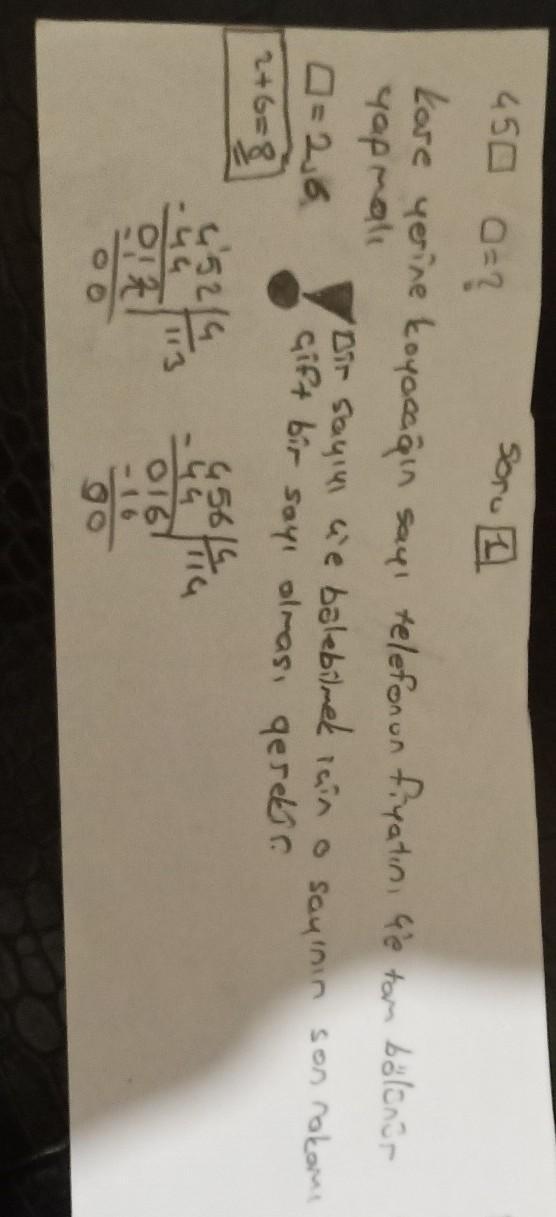 Soru 1
45□ □=?
kare yerine koyacağın sayı telefonun fiyatını 4'e tam bölünür
yapmalı
□=2,6
2+6=8
Bir sayıyı 4'e bölebilmek için o sayının son rakamı
çift bir sayı olması gerekir.
452 | 4
- 44 113
012
- 12
00
456 | 4
- 44 114
016
- 16
00